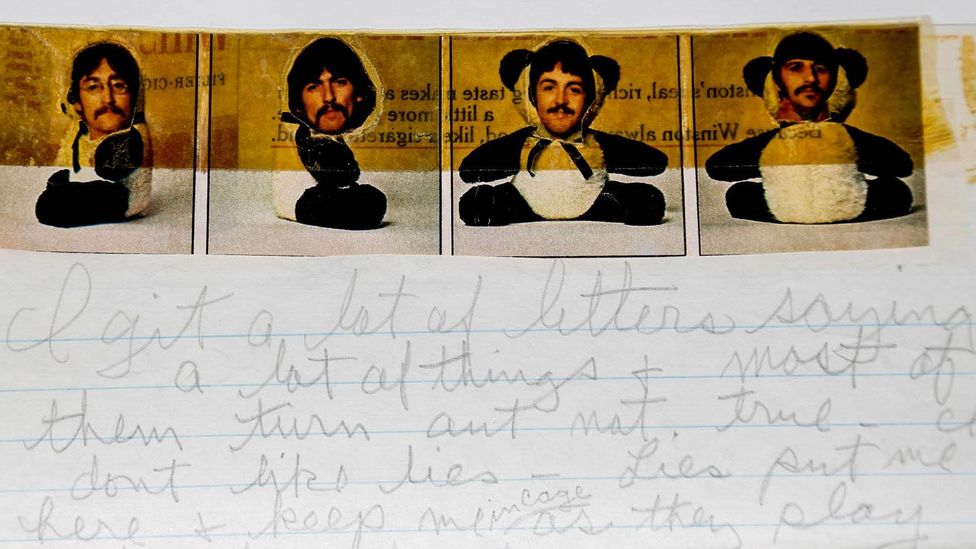 FILTER·CIG
real, rich taste makes
a little more
Because Winston always like a cigarette
I git a lot of letters saying
a lot of things & most of
them turn out not. true –
dont like lies – Lies put me
here & keep me in cage as they play